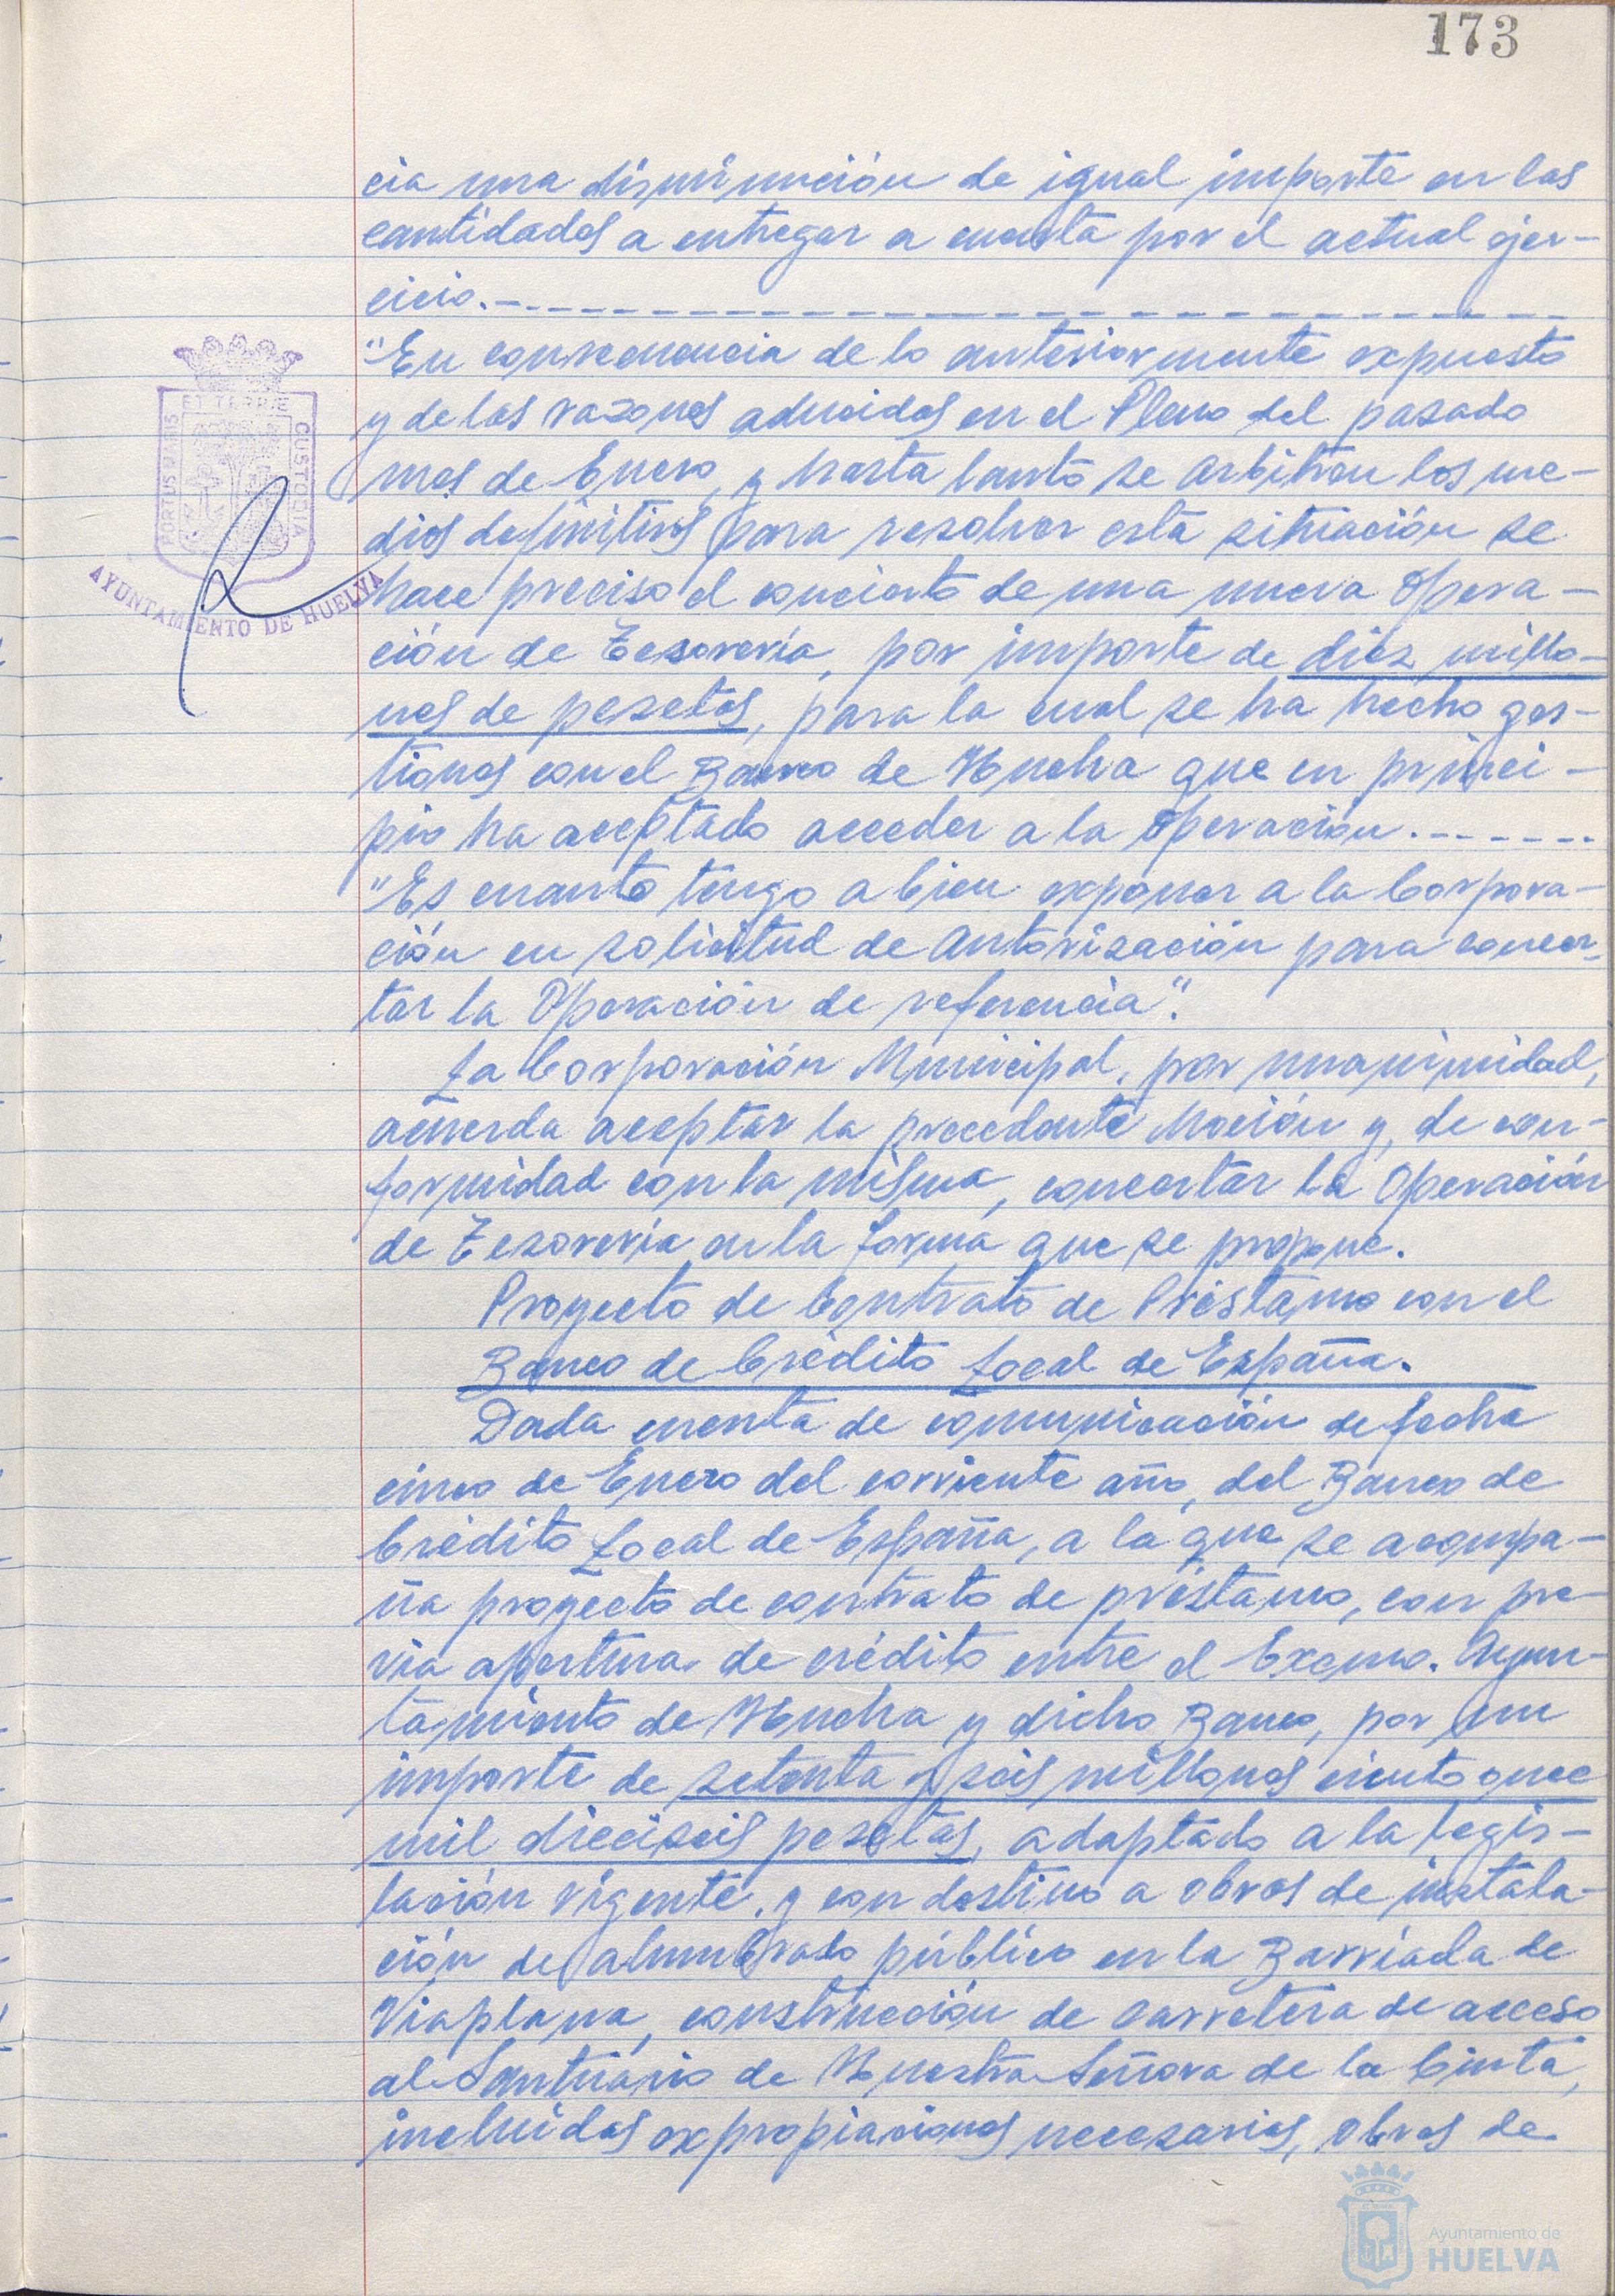 173
cia una disminución de igual importe en las
cantidades a entregar a cuenta por el actual ejer-
cicio.-
"En consecuencia de lo anteriormente expuesto
y de las razones aducidas en el Pleno del pasado
mes de Enero, y hasta tanto se arbitren los me-
dios definitivos para resolver esta situación se
hace preciso el concierto de una nueva Opera-
ción de Tesorería, por importe de diez millo-
nes de pesetas, para la cual se ha hecho ges-
tiones con el Banco de Huelva que en princi-
pio ha aceptado acceder a la Operación.------
"Es cuanto tengo a bien exponer a la Corpora-
ción en solicitud de Autorización para concer-
tar la Operación de referencia".
La Corporación Municipal, por unanimidad,
acuerda aceptar la precedente Moción y, de con-
formidad con la misma, concertar la Operación
de Tesorería en la forma que se propone.
Proyecto de Contrato de Préstamo con el
Banco de Crédito Local de España.
Dada cuenta de comunicación de fecha
cinco de Enero del corriente año, del Banco de
Crédito Local de España, a la que se acompa-
ña proyecto de contrato de préstamo, con pre-
via apertura de crédito entre el Excmo. Ayun-
tamiento de Huelva y dicho Banco, por un
importe de setenta y seis millones ciento once
mil dieciseis pesetas, adaptado a la legis-
lación vigente, y con destino a obras de instala-
ción de alumbrado público en la Barriada de
Viaplana, construcción de carretera de acceso
al Santuario de Nuestra Señora de la Cinta,
incluidas expropiaciones necesarias, obras de
PORTUS MARIS
ET TERRE
CUSTODIA
AYUNTAMIENTO DE HUELVA
Ayuntamiento de
HUELVA